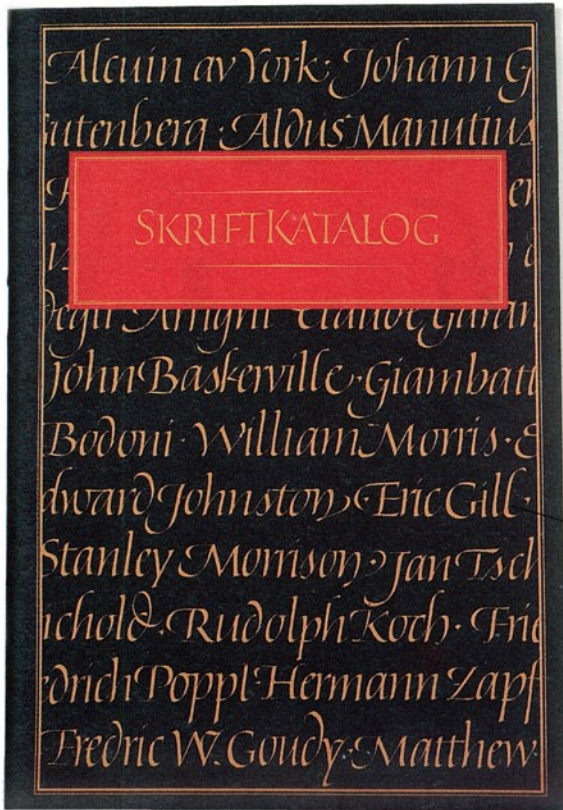 Alcuin av York · Johann G
utenberg · Aldus Manutius
SKRIFTKATALOG
degli Arrighi Claude Garam
John Baskerville · Giambatt
Bodoni · William Morris · E
dward Johnston · Eric Gill ·
Stanley Morrison · Jan Tsch
ichold · Rudolph Koch · Frie
edrich Poppl · Hermann Zapf
Fredric W. Goudy · Matthew